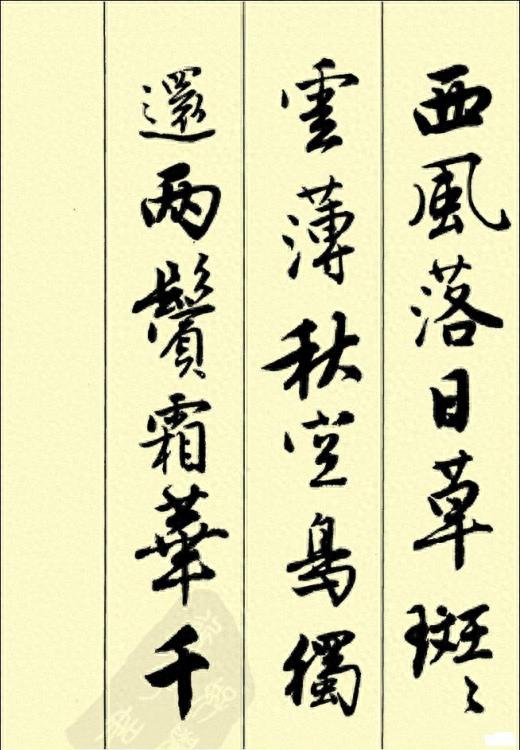 西風落日草斑々
雲薄秋空鳥獨
還兩鬢霜華千